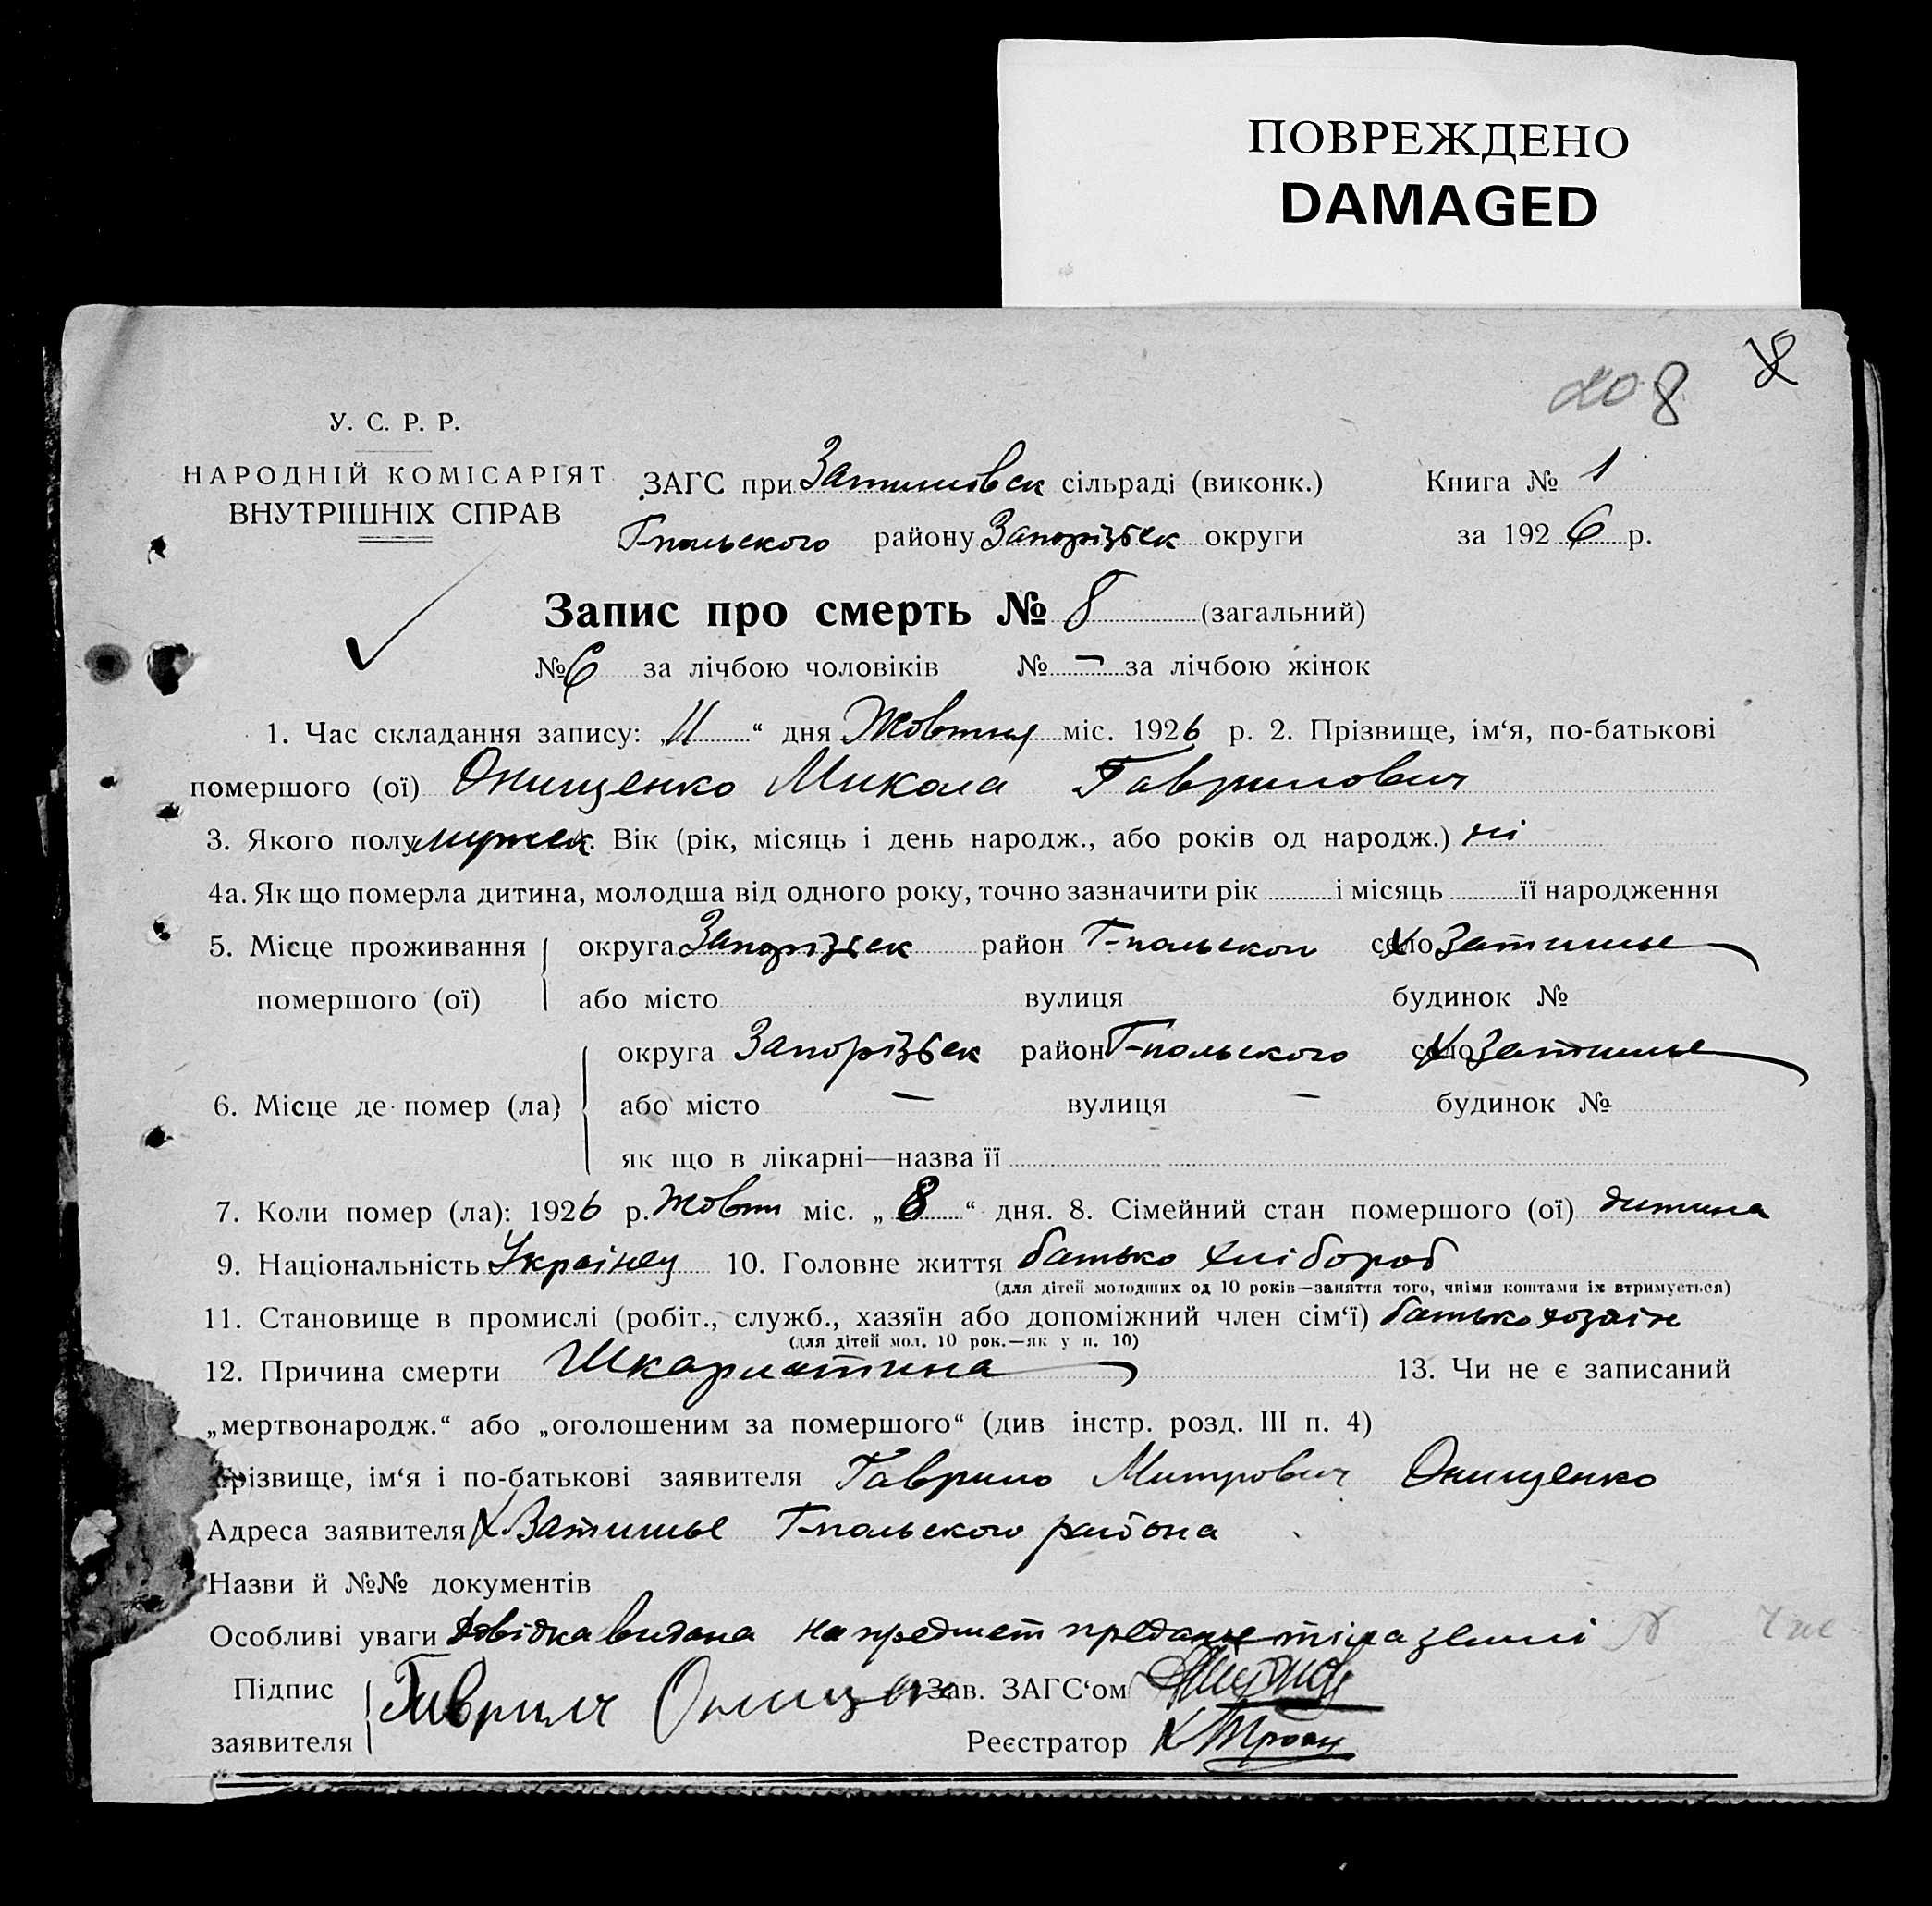 ПОВРЕЖДЕНО
DAMAGED
208
У. С. Р. Р.
НАРОДНІЙ КОМІСАРІЯТ
ВНУТРІШНІХ СПРАВ
ЗАГС при Затишовск сільраді (виконк.) Книга № 1
Г-польского району Запорізьк округи за 1926 р.
Запис про смерть № 8 (загальний)
№ 6 за лічбою чоловіків № — за лічбою жінок
1. Час складання запису: „11“ дня Жовтня міс. 1926 р. 2. Прізвище, ім‘я, по-батькові
помершого (ої) Онищенко Микола Гаврилович
3. Якого полу мужеск. Вік (рік, місяць і день народж., або років од народж.)
4а. Як що померла дитина, молодша від одного року, точно зазначити рік і місяць її народження
5. Місце проживання помершого (ої) округа Запорізьк район Г-польскои село Х Затишье
або місто вулиця будинок №
6. Місце де помер (ла) округа Запорізьк район Г-польского село Х Затишье
або місто — вулиця — будинок №
як що в лікарні—назва її
7. Коли помер (ла): 1926 р. Жовтн міс. „8“ дня. 8. Сімейний стан помершого (ої) дитина
9. Національність Українец 10. Головне життя батько хлібороб
(для дітей молодших од 10 років—заняття того, чиїми коштами їх втримується)
11. Становище в промислі (робіт., служб., хазяїн або допоміжний член сім‘ї) батько хозаін
(для дітей мол. 10 рок.—як у п. 10)
12. Причина смерти Шкарлатина 13. Чи не є записаний
„мертвонародж.“ або „оголошеним за помершого“ (див інстр. розд. III п. 4)
Прізвище, ім‘я і по-батькові заявителя Гаврило Митрович Онищенко
Адреса заявителя Х. Затишье Г-польского района
Назви й №№ документів
Особливі уваги Довідка видана на предмет преданье тіла землі
Підпис заявителя Гаврилч Онищенко Зав. ЗАГС‘ом
Реєстратор